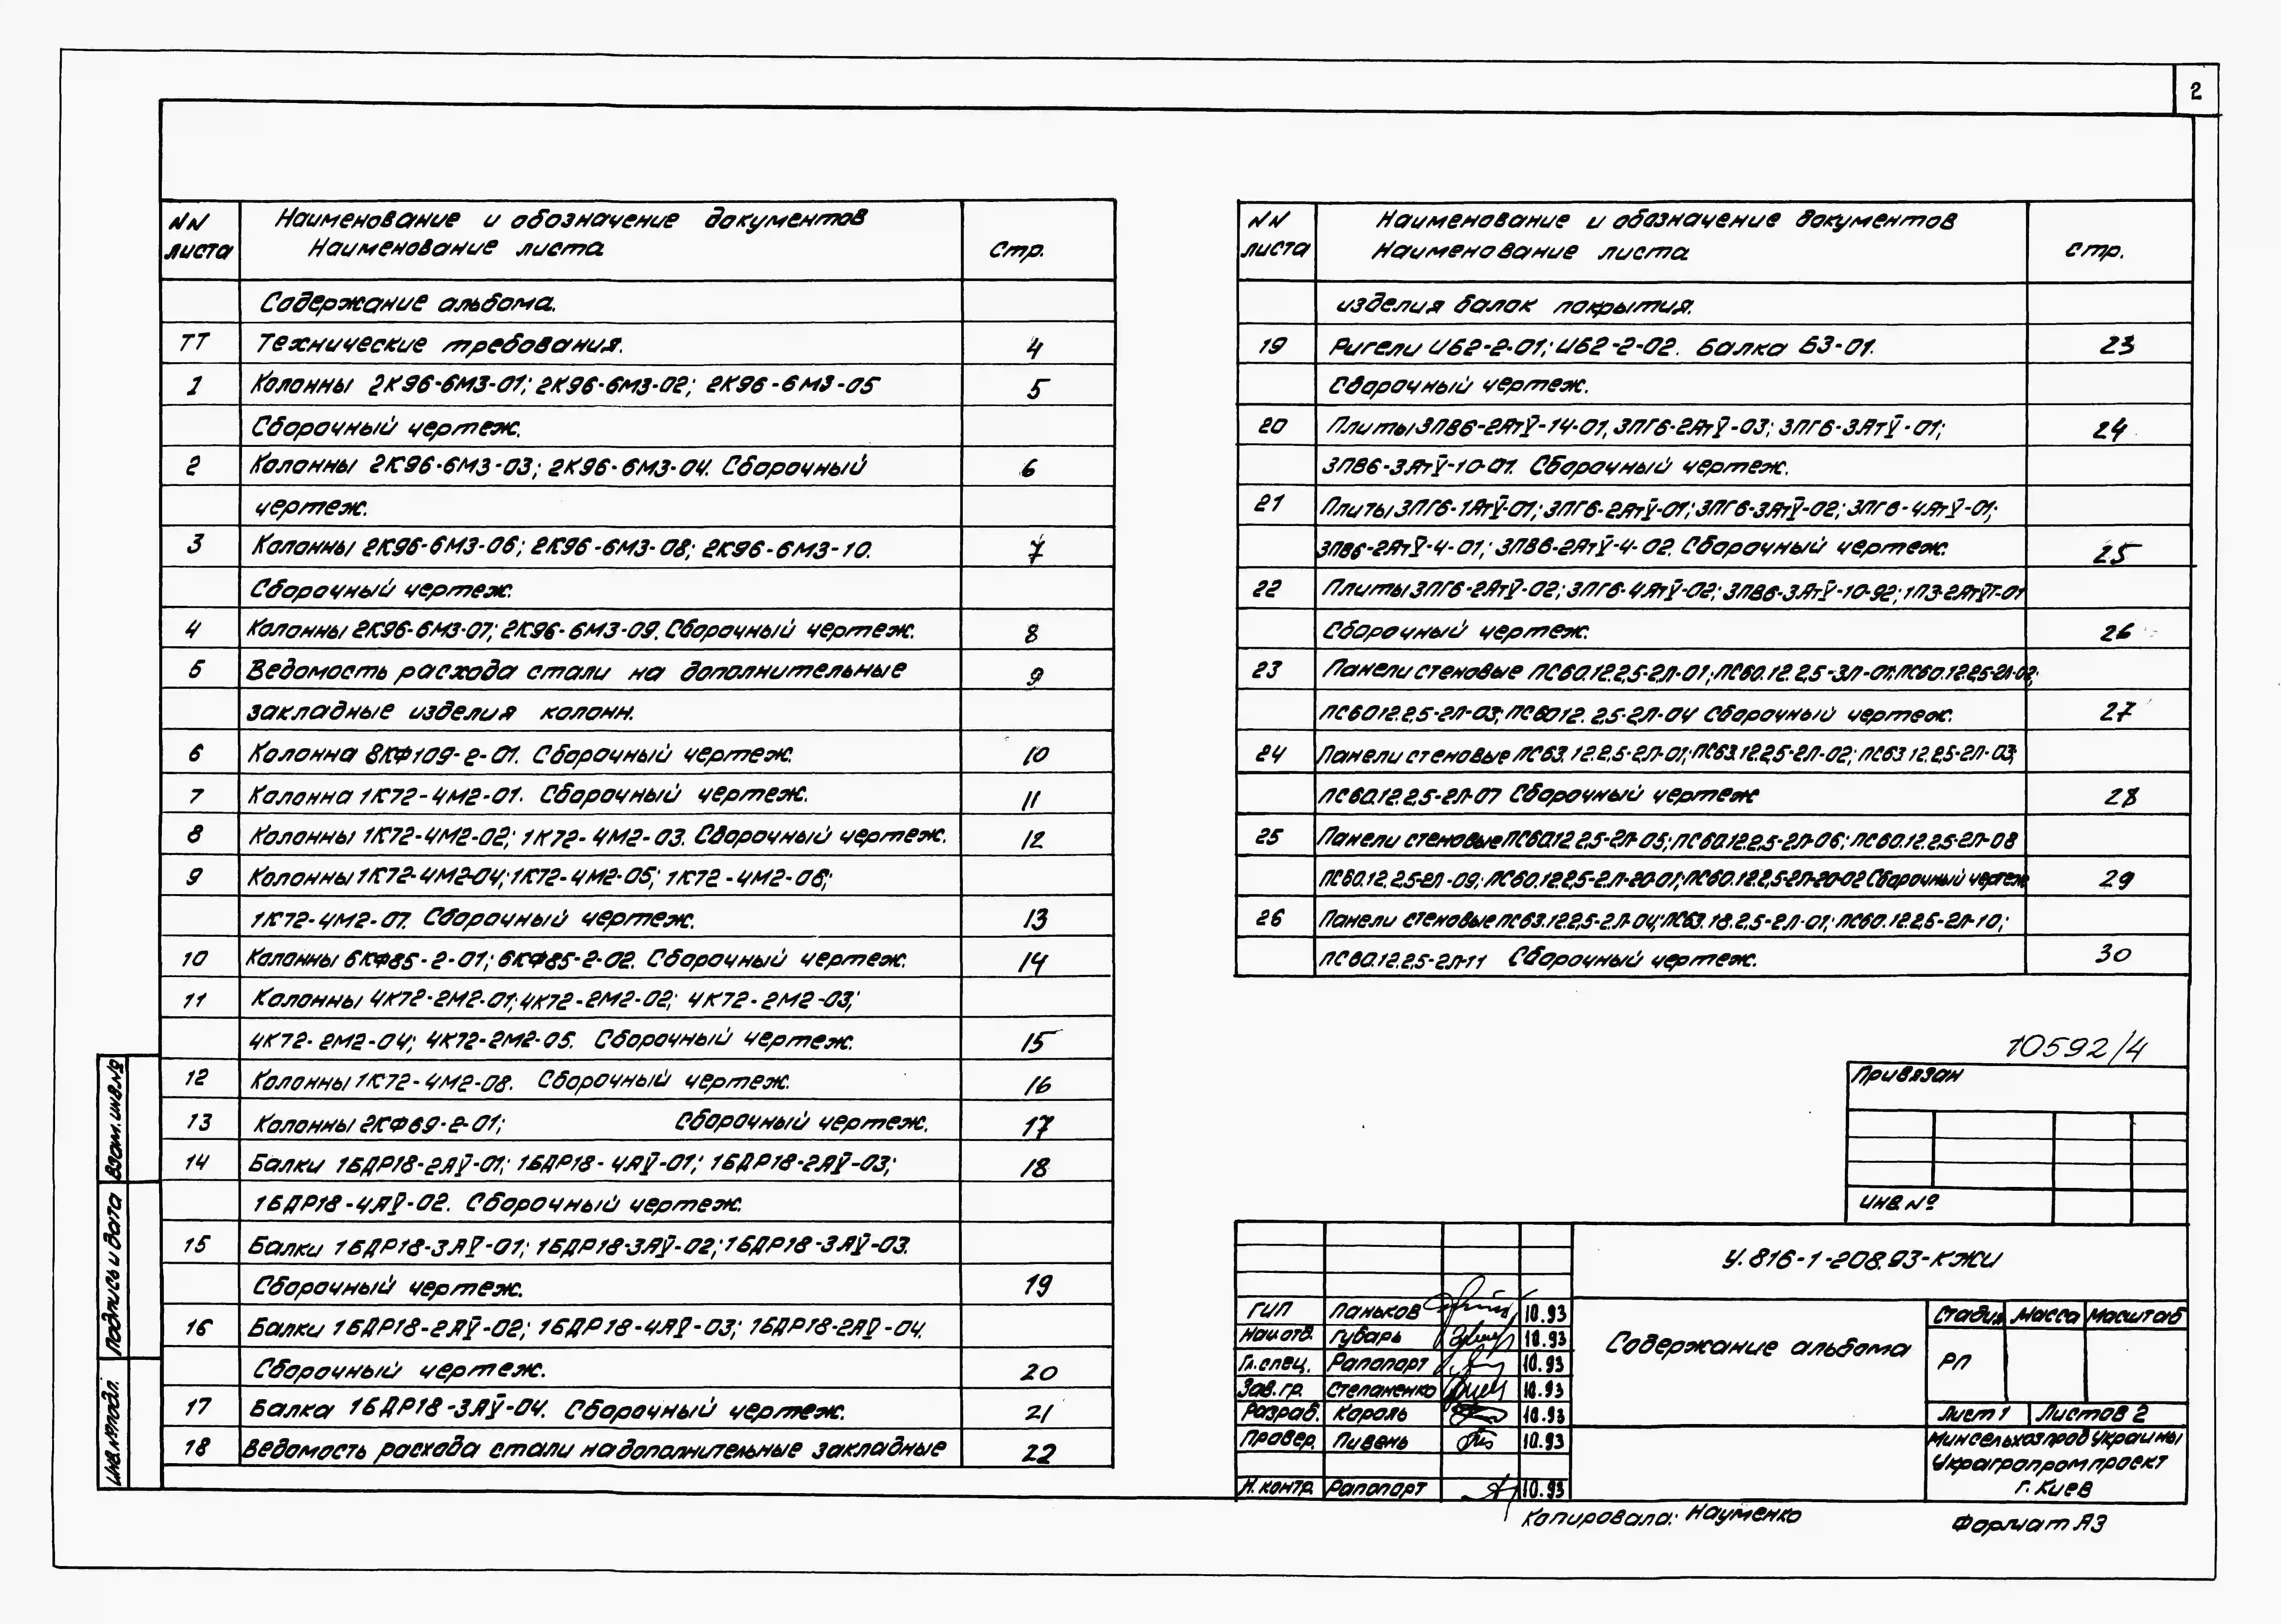 2
NN листа Наименование и обозначение документов Наименование листа Стр.
Содержание альбома.
ТТ Технические требования. 4
1 Колонны 2К96-6М3-01; 2К96-6М3-02; 2К96-6М3-05 5
Сборочный чертеж.
2 Колонны 2К96-6М3-03; 2К96-6М3-04. Сборочный 6
чертеж.
3 Колонны 2К96-6М3-06; 2К96-6М3-08; 2К96-6М3-10. 7
Сборочный чертеж.
4 Колонны 2К96-6М3-07; 2К96-6М3-09. Сборочный чертеж. 8
5 Ведомость расхода стали на дополнительные 9
закладные изделия колонн.
6 Колонна 8КФ109-2-01. Сборочный чертеж. 10
7 Колонна 1К72-4М2-01. Сборочный чертеж. 11
8 Колонны 1К72-4М2-02; 1К72-4М2-03. Сборочный чертеж. 12
9 Колонны 1К72-4М2-04; 1К72-4М2-05; 1К72-4М2-06;
1К72-4М2-07. Сборочный чертеж. 13
10 Колонны 6КФ85-2-01; 6КФ85-2-02. Сборочный чертеж. 14
11 Колонны 4К72-2М2-01; 4К72-2М2-02; 4К72-2М2-03;
4К72-2М2-04; 4К72-2М2-05. Сборочный чертеж. 15
12 Колонны 1К72-4М2-08. Сборочный чертеж. 16
13 Колонны 2КФ69-2-01; Сборочный чертеж. 17
14 Балки 1БДР18-2АV-01; 1БДР18-4АV-01; 1БДР18-2АV-03; 18
1БДР18-4АV-02. Сборочный чертеж.
15 Балки 1БДР18-3АV-01; 1БДР18-3АV-02; 1БДР18-3АV-03.
Сборочный чертеж. 19
16 Балки 1БДР18-2АV-02; 1БДР18-4АV-03; 1БДР18-2АV-04.
Сборочный чертеж. 20
17 Балка 1БДР18-3АV-04. Сборочный чертеж. 21
18 Ведомость расхода стали на дополнительные закладные 22
NN листа Наименование и обозначение документов Наименование листа Стр.
изделия балок покрытия.
19 Ригели ИБ2-2-01; ИБ2-2-02. Балка Б3-01. 23
Сборочный чертеж.
20 Плиты 3ПВ6-2АтV-14-01, 3ПГ6-2АтV-03; 3ПГ6-3АтV-01; 24
3ПВ6-3АтV-10-01. Сборочный чертеж.
21 Плиты 3ПГ6-1АтV-01; 3ПГ6-2АтV-01; 3ПГ6-3АтV-02; 3ПГ6-4АтV-01;
3ПВ6-2АтV-4-01; 3ПВ6-2АтV-4-02. Сборочный чертеж. 25
22 Плиты 3ПГ6-2АтV-02; 3ПГ6-4АтV-02; 3ПВ6-3АтV-10-92; 1П3-2АтVТ-01
Сборочный чертеж. 26
23 Панели стеновые ПС60.12.2,5-2Л-01; ПС60.12.2,5-3Л-01; ПС60.12.2,5-2Л-02;
ПС6012.2,5-2Л-03; ПС6012.2,5-2Л-04 Сборочный чертеж. 27
24 Панели стеновые ПС63.12.2,5-2Л-01; ПС63.12.2,5-2Л-02; ПС63.12.2,5-2Л-03;
ПС60.12.2,5-2Л-07 Сборочный чертеж 28
25 Панели стеновые ПС60.12.2,5-2Л-05; ПС60.12.2,5-2Л-06; ПС60.12.2,5-2Л-08
ПС60.12.2,5-2Л-09; ПС60.12.2,5-2Л-20-01; ПС60.12.2,5-2Л-20-02 Сборочный чертеж 29
26 Панели стеновые ПС63.12.2,5-2Л-04; ПС63.18.2,5-2Л-01; ПС60.12.2,5-2Л-10;
ПС60.12.2,5-2Л-11 Сборочный чертеж. 30
10592/4
Привязан
Инв.№
У.816-1-208.93-КЖИ
ГИП Паньков 10.93
Нач.отд. Губарь 10.93
Гл.спец. Рапопорт 10.93
Зав.гр. Степаненко 10.93
Разраб. Король 10.93
Провер. Пивень 10.93
Н.контр. Рапопорт 10.93
Содержание альбома
Стадия Масса Масштаб
РП
Лист 1 Листов 2
Минсельхозпрод Украины
Украгропромпроект
г. Киев
Копировала: Науменко Формат А3
Взам.инв.№
Подпись и дата
Инв.№подл.